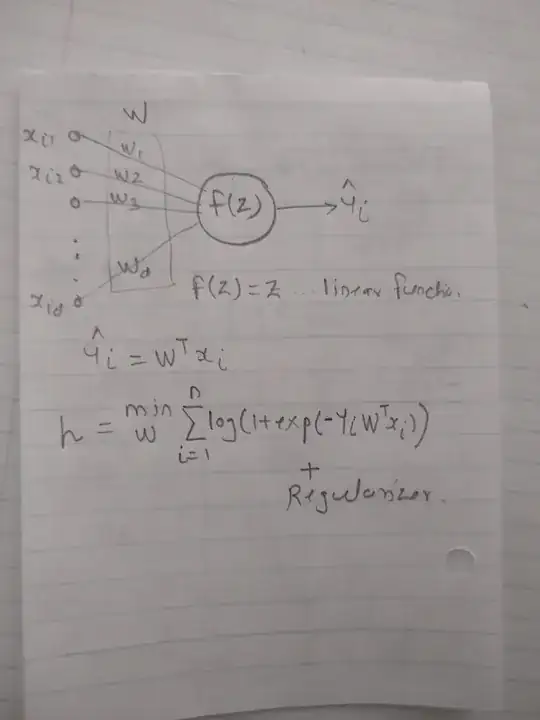 W
x_{i1} w_1
x_{i2} w_2
w_3
f(z) → ŷ_i
⋮
x_{id} w_d
f(z) = z ... linear functio.
ŷ_i = w^T x_i
h = min_w \sum_{i=1}^{n} log(1+exp(-y_i w^T x_i))
+
Regularizer.